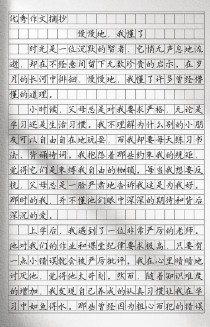 优秀作文摘抄
慢慢地，我懂了
时光是一位沉默的智者，它悄无声息地流
逝，却在不经意间留下无数珍贵的启示。在岁月
的长河中徘徊，慢慢地，我懂了许多曾经懵
懂的道理。
小时候，父母总是对我要求严格，无论是
学习还是生活习惯。我不理解为什么别的小朋
友可以自由自在地玩耍，而我却要每天练习书
法、背诵诗词。我抱怨着那些约束我的规矩，
觉得它们是束缚我自由的枷锁。每当我想要反
抗，父母总是一脸严肃地告诉我这是为我好。
那时的我，并不懂他们眼中深深的期待和背后
深沉的爱。
上学后，我遇到了一位非常严厉的老师。
他对我们的作业和课堂纪律要求极高，只要有
一点小错误就会被严厉批评。我在心里暗暗地
讨厌他，觉得他太苛刻。然而，随着知识难度
的增加，我发现自己养成的认真习惯让我在学
习中如鱼得水。那些曾经因为粗心犯的错误